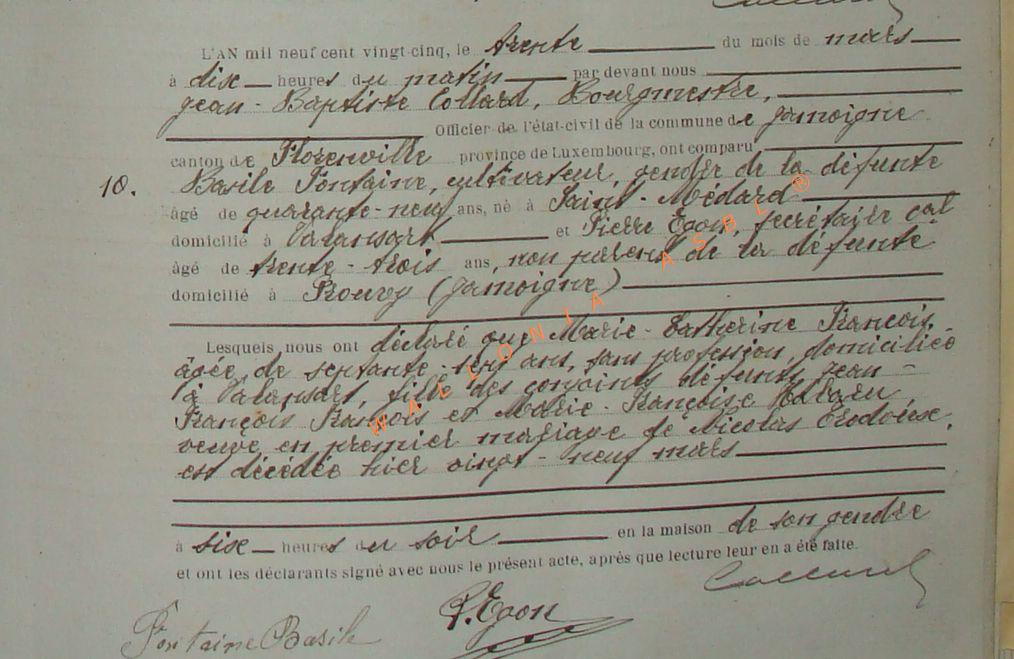 L'AN mil neuf cent vingt-cinq, le trente du mois de mars
à dix heures du matin par devant nous
Jean-Baptiste Collard, Bourgmestre,
Officier de l'état-civil de la commune de Jamoigne
canton de Florenville province de Luxembourg, ont comparu
10. Basile Fontaine, cultivateur, gendre de la défunte
âgé de quarante-neuf ans, né à Saint-Médard
domicilié à Valansart et Pierre Egon, secrétaire cal
âgé de trente-trois ans, non parent de la défunte
domicilié à Prouvy (Jamoigne)
Lesquels nous ont déclaré que Marie-Catherine François,
âgée de septante-sept ans, sans profession, domiciliée
à Valansart, fille des conjoints défunts Jean-
François François et Marie-Françoise
veuve en premier mariage de Nicolas
est décédée hier vingt-neuf mars
à six heures du soir en la maison de son gendre
et ont les déclarants signé avec nous le présent acte, après que lecture leur en a été faite.
Collard
P. Egon
Fontaine Basile
WALLONIA ASBL ®